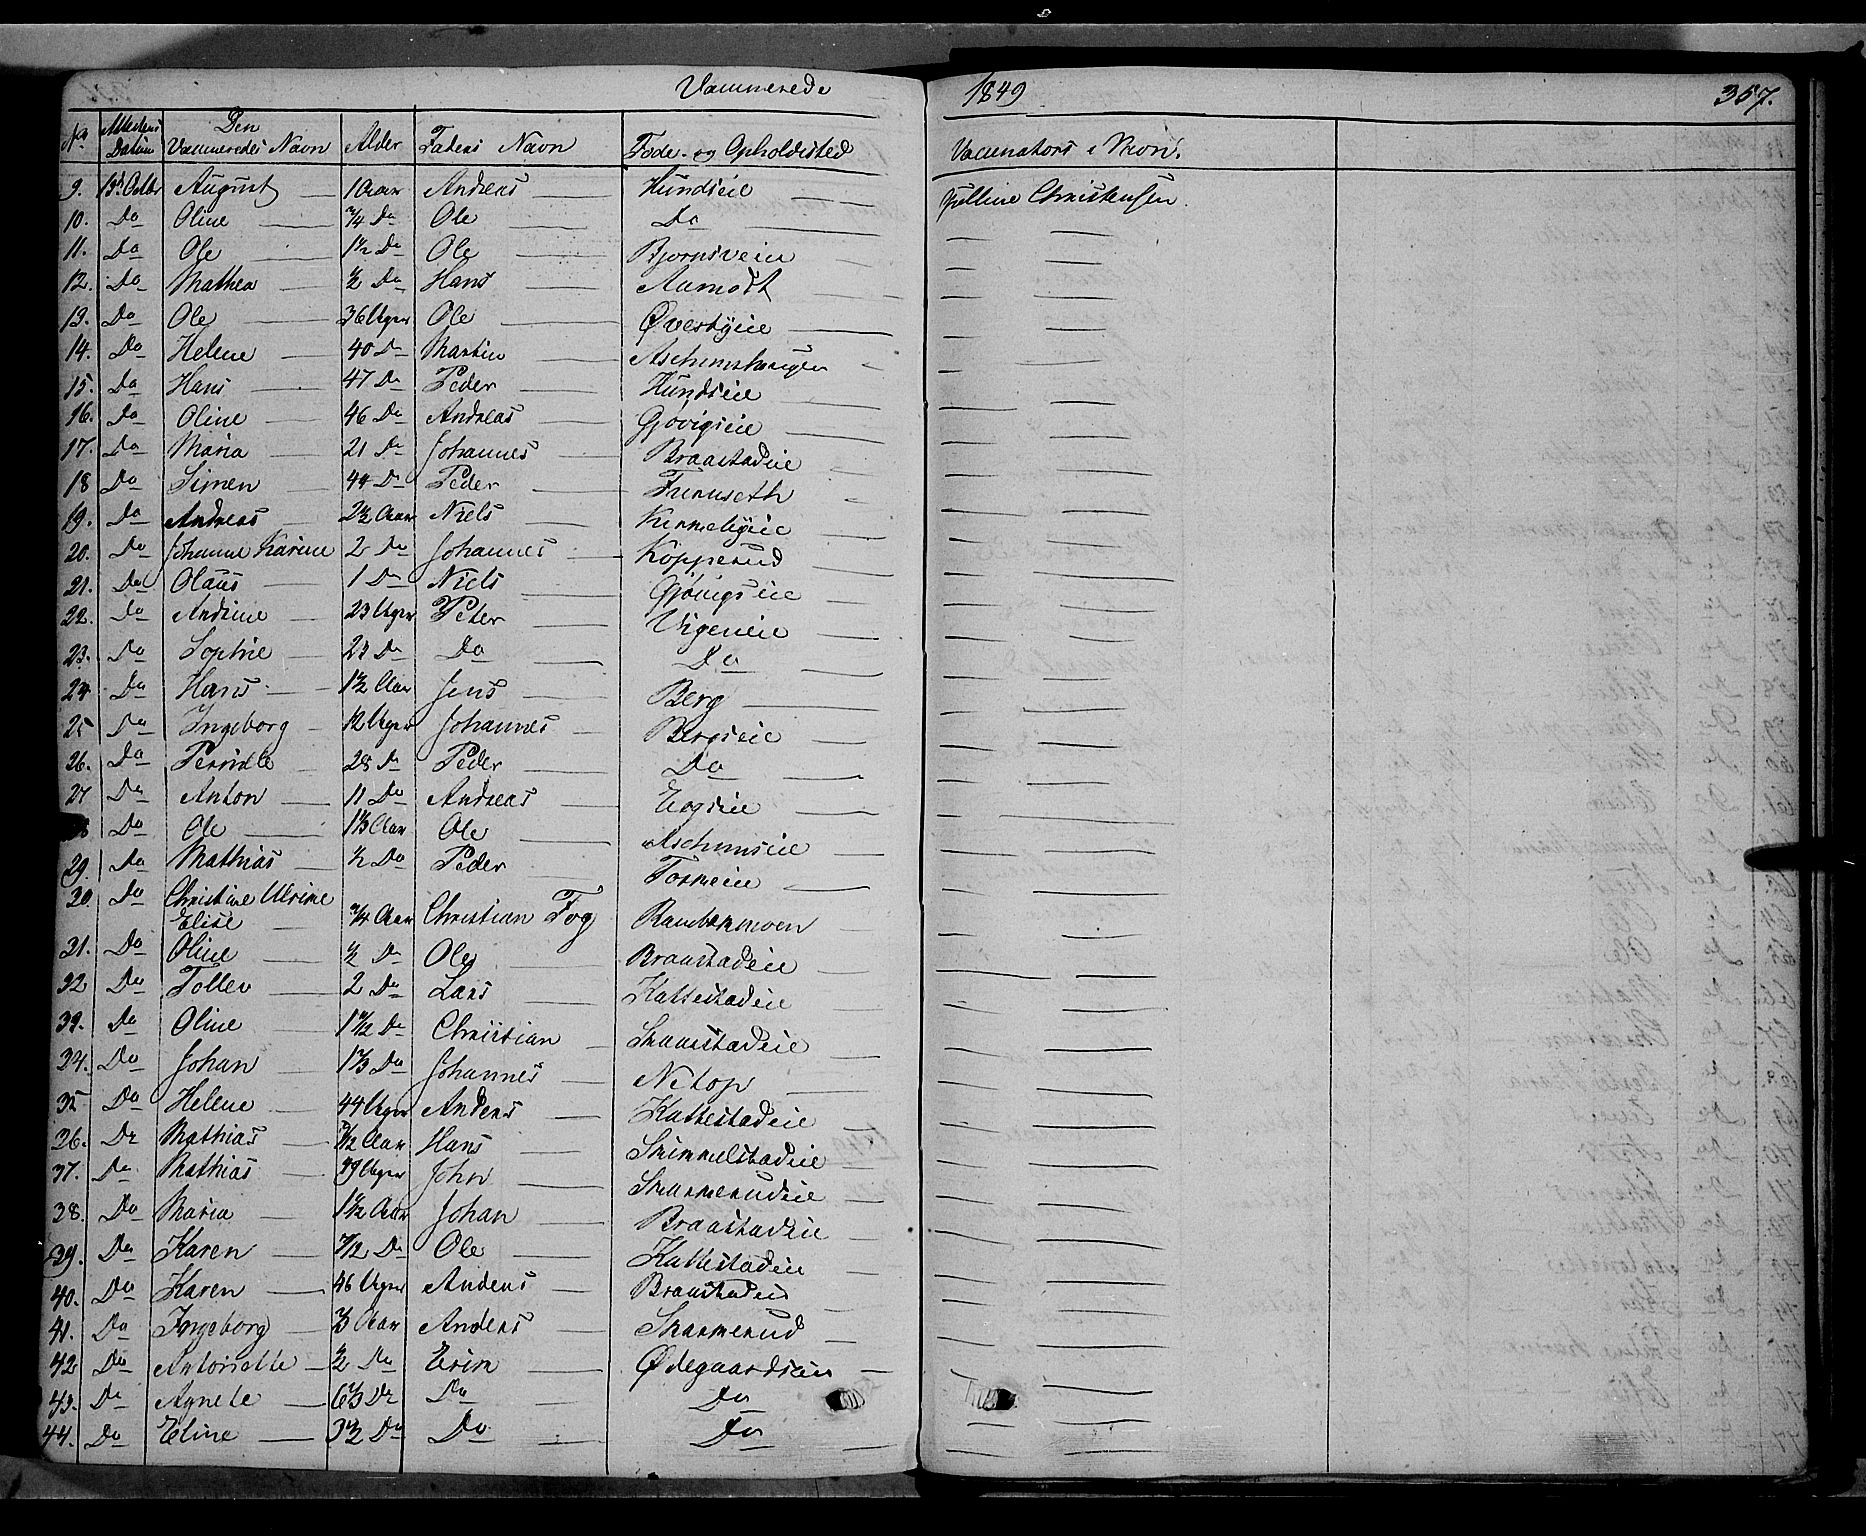 Vaccinerede 1849 357.
No Attestens Datum Den Vaccineredes Navn Alder Faders Navn Føde- og Opholdssted Vaccinators Navn.
9. 13de Octbr August 1 Aar Andreas Hundseie Julline Christensen
10. Do Oline 3/4 Do Ole Do
11. Do Ole 1 1/2 Do Ole Bjørnsveie
12. Do Mathea 1/2 Do Hans Aamodt
13. Do Ole 36 Uger Ole Øvrebyeie
14. Do Helene 40 Do Martin Aschimshaugen
15. Do Hans 47 Do Peder Hundseie
16. Do Oline 46 Do Andreas Gjøvigseie
17. Do Maria 21 Do Johannes Braastadeie
18 Do Simen 44 Do Peder Furuseth
19. Do Andreas 2 1/2 Aar Niels
20. Do Johanne Karine 2 Do Johannes Kopperud
21. Do Olaus 1 Do Niels Gjøvigseie
22. Do Andrine 23 Uger Peter Vigeneie
23. Do Sophie 23 Do Do Do
24 Do Hans 1 1/2 Aar Jens Berg
25 Do Ingeborg 12 Uger Johannes Bergseie
26. Do Pernille 28 Do Peder Do
27 Do Anton 11 Do Andreas Eegseie
Do Ole 1 1/3 Aar Ole Aschimseie
29. Do Mathias 1/2 Do Peder
30. Do Christine Ulrikke
Elise 3/4 Aar Christian Fog Rambekmoen
31. Do Oline 1/2 Do Ole Braastadeie
32 Do Tollev 2 Do Lars Kattestadeie
33. Do Oline 1 1/2 Do Christian Skaarstadeie
34. Do Johan 1 1/3 Do Johannes Netop
35 Do Helene 44 Uger Anders Kattestadeie
36. Do Mathias Aar Hans Skimmelstadeie
37. Do Mathias 39 Uger John Skarmerudeie
38. Do Maria 1 1/2 Aar Johan Braastadeie
39. Do Karen Do Ole Kattestadeie
40. Do Karen 46 Uger Anders Braastadeie
41. Do Ingeborg Aar Anders Skarmerud
42 Do Antonette 1/2 Do Erik Ødegaardseie
43. Do Agnete 6 1/3 Do Do Do
44. Do Eline 3 1/2 Do Do Do